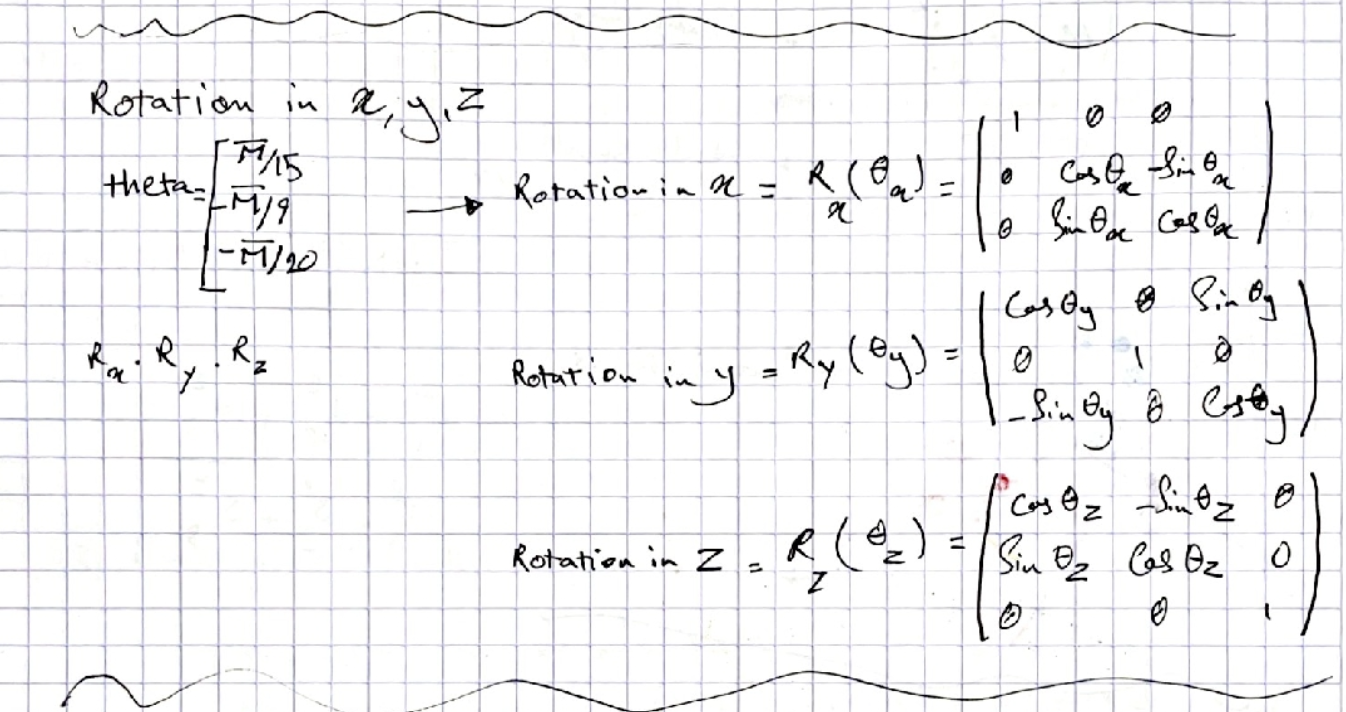 Rotation in x, y, z
theta = [ π/15
-π/9
-π/20
→ Rotation in x = Rx(θx) = | 1 0 0 |
| 0 cosθx -Sinθx |
| 0 Sinθx cosθx |
Rx . Ry . Rz
Rotation in y = Ry(θy) = | Cosθy 0 Sinθy |
| 0 1 0 |
| -Sinθy 0 Cosθy |
Rotation in Z = Rz(θz) = | cosθz -Sinθz 0 |
| Sinθz Cosθz 0 |
| 0 0 1 |